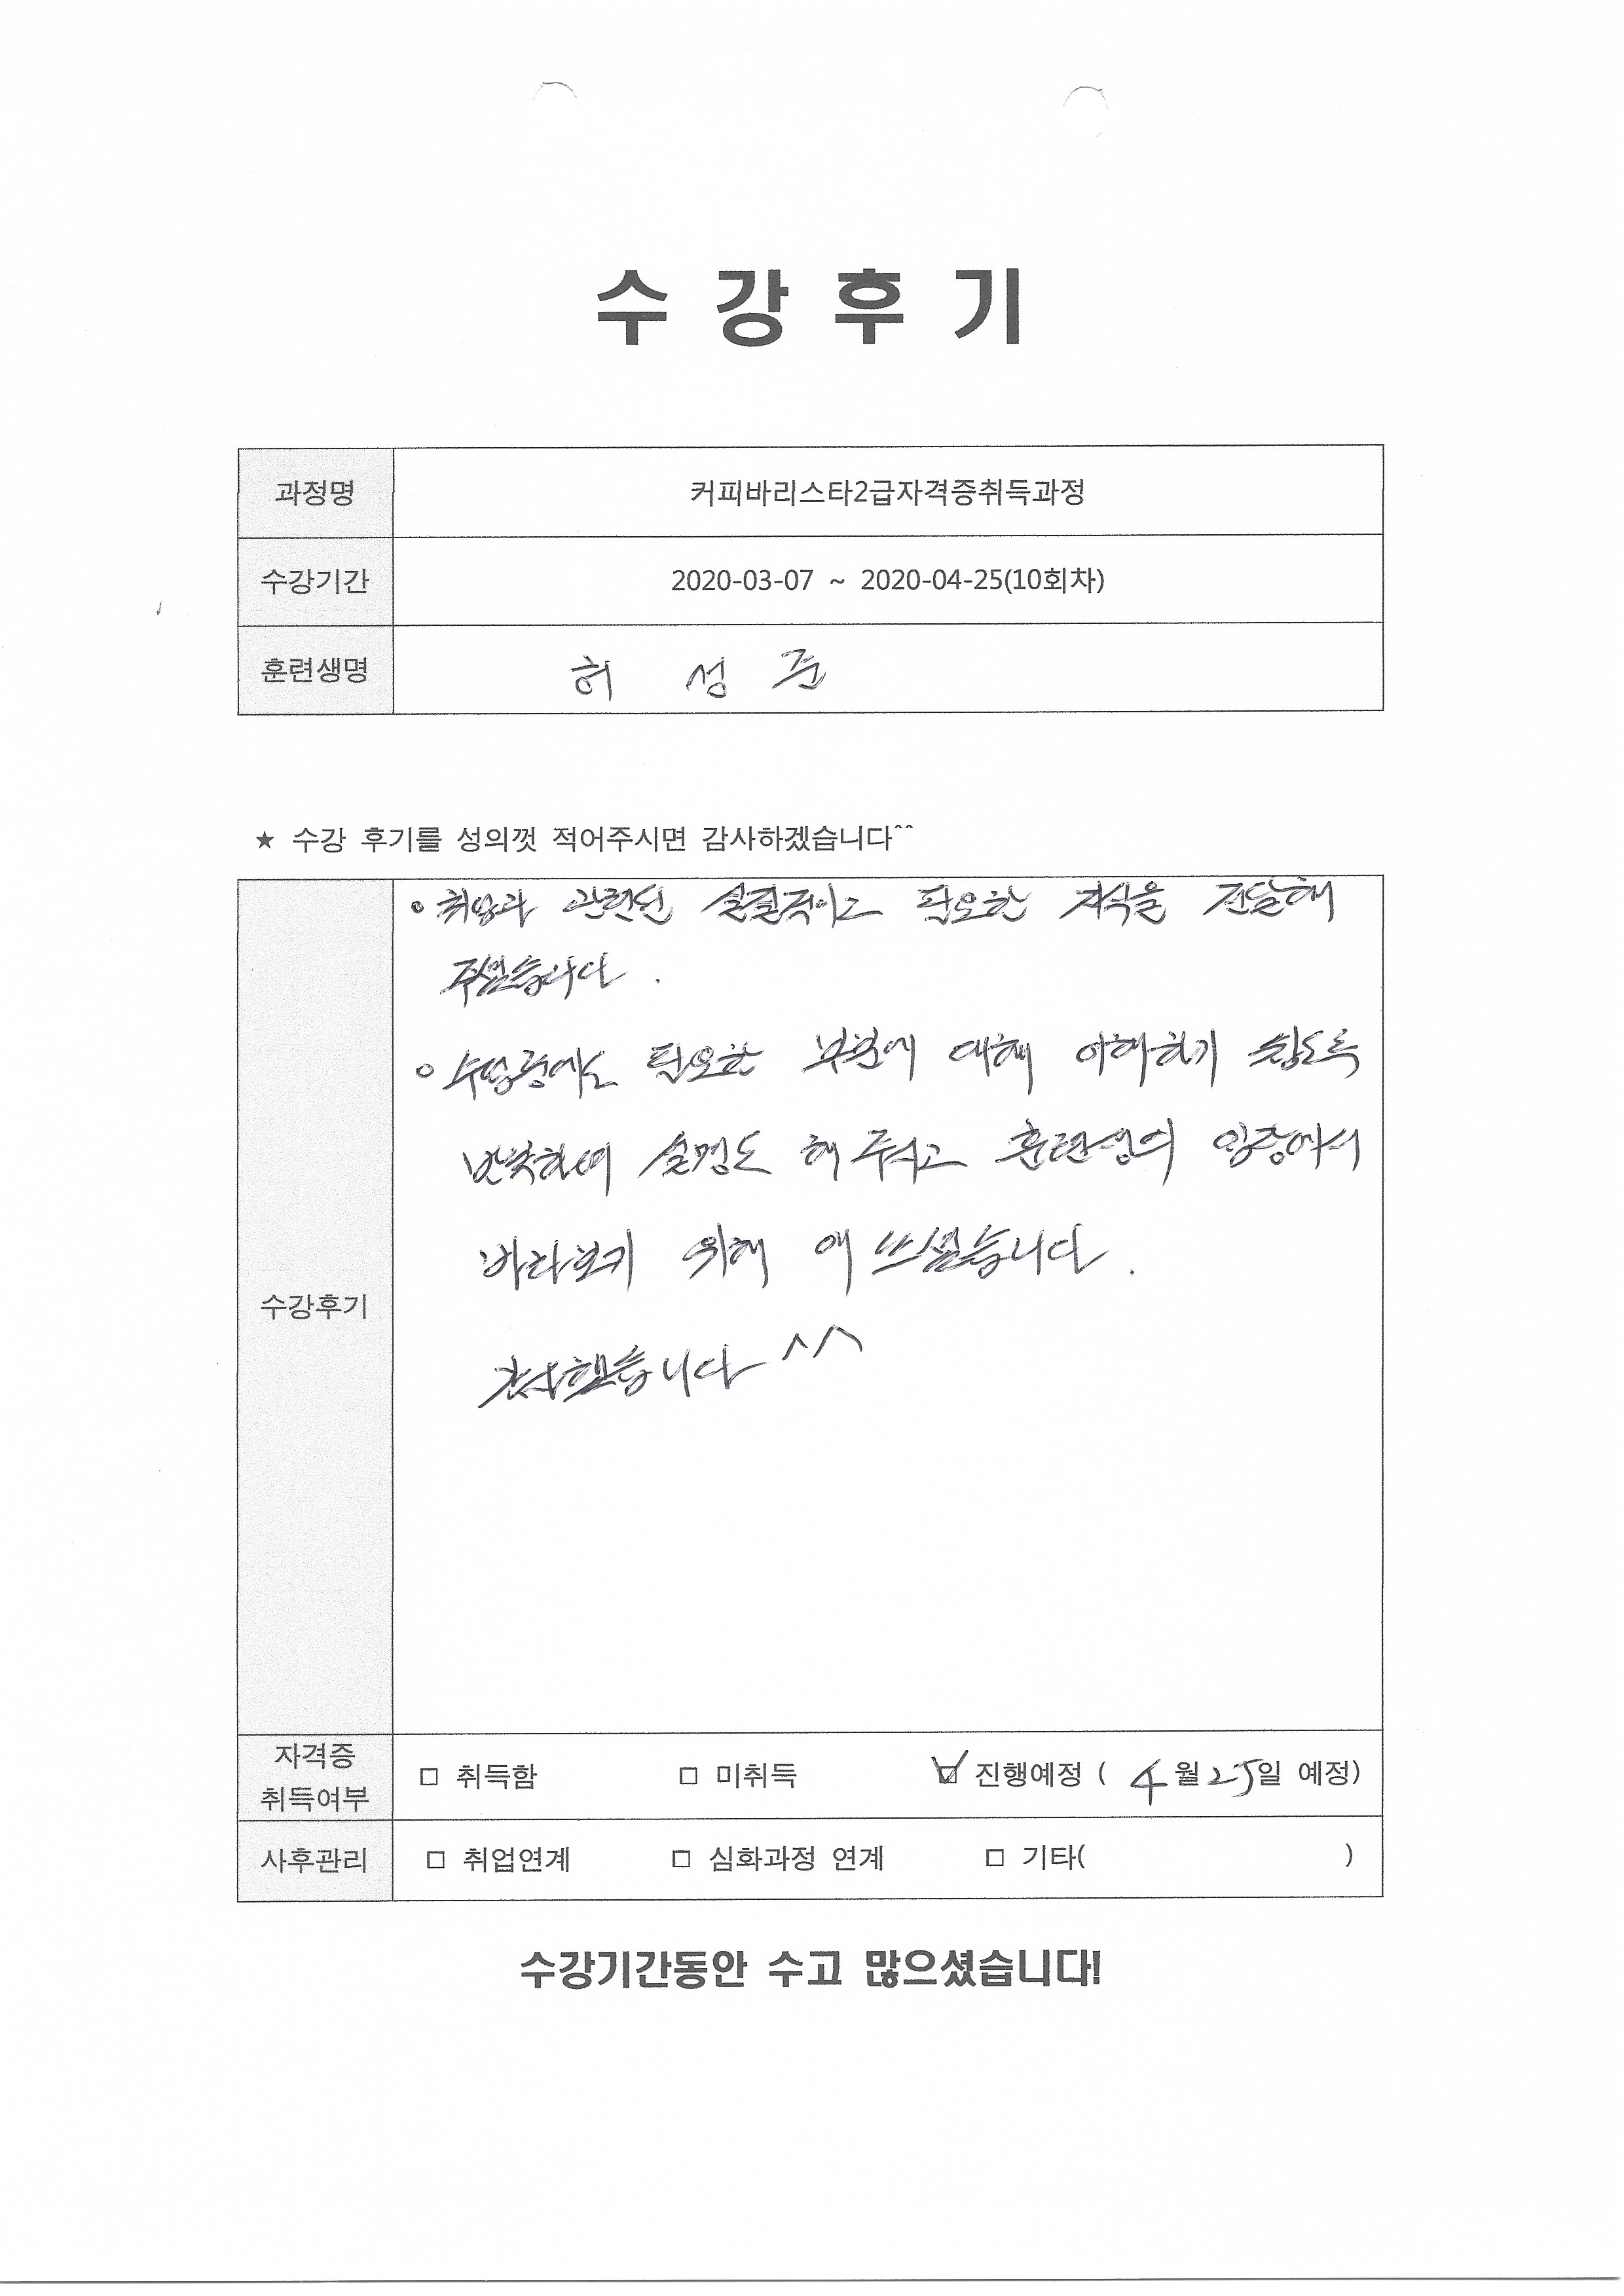 수 강 후 기
과정명 커피바리스타2급자격증취득과정
수강기간 2020-03-07 ~ 2020-04-25(10회차)
훈련생명 허 성 준
★ 수강 후기를 성의껏 적어주시면 감사하겠습니다^^
수강후기
◦ 취업과 관련된 실질적이고 필요한 지식을 전달해
주셨습니다.
◦ 수업중에도 필요한 부분에 대해 이해하기 쉽도록
반복하여 설명도 해 주시고 훈련생의 입장에서
바라보기 위해 애 쓰셨습니다.
감사했습니다 ^^
자격증 취득여부 □ 취득함 □ 미취득 ☑ 진행예정 ( 4월 25일 예정)
사후관리 □ 취업연계 □ 심화과정 연계 □ 기타( )
수강기간동안 수고 많으셨습니다!